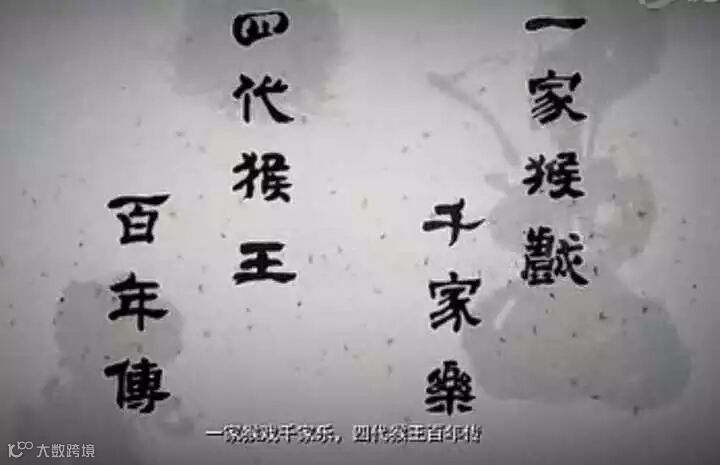 一家猴戲
千家樂
四代猴王
百年傳
一家猴戏千家乐，四代猴王百年传
大数跨境